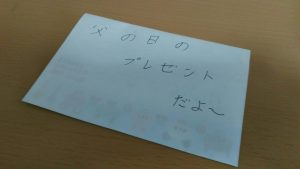 父の日の
プレゼント
だよ～